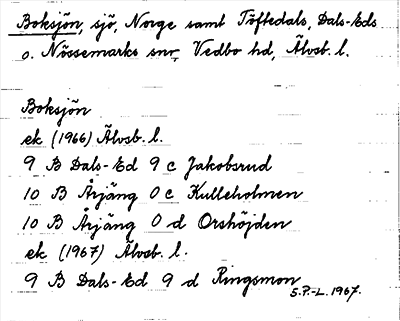 Boksjön, sjö, Norge samt Töftedals, Dals-Eds
o. Nössemarks snr, Vedbo hd, Älvsb. l.
Boksjön
ek (1966) Älvsb. l.
9 B Dals-Ed 9 c Jakobsrud
10 B Årjäng 0 c Kulleholmen
10 B Årjäng 0 d Orshöjden
ek (1967) Älvsb. l.
9 B Dals-Ed 9 d Ringsmon
S.P.-L. 1967.